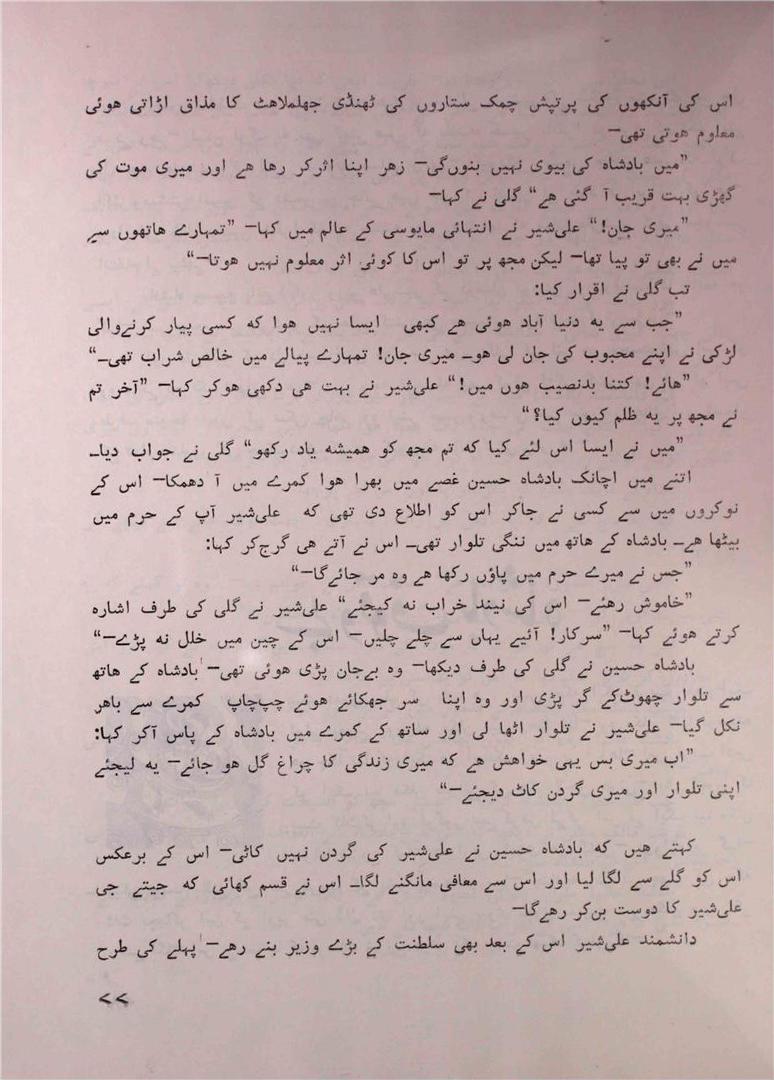 اس کی آنکھوں کی پرتپش چمک ستاروں کی ٹھنڈی جھلملاهٹ کا مذاق اڑاتی هوئی
معلوم هوتی تھی—
”میں بادشاہ کی بیوی نہیں بنوں‌گی— زهر اپنا اثرکر رها هے اور میری موت کی
گھڑی بہت قریب آ گئی هے“ گلی نے کہا—
”میری جان!“ علی‌شیر نے انتہائی مایوسی کے عالم میں کہا— ”تمہارے هاتھوں سے
میں نے بھی تو پیا تھا— لیکن مجھ پر تو اس کا کوئی اثر معلوم نہیں هوتا—“
تب گلی نے اقرار کیا:
”جب سے یہ دنیا آباد هوئی هے کبھی ایسا نہیں هوا که کسی پیار کرنے‌والی
لڑکی نے اپنے محبوب کی جان لی هو۔ میری جان! تمہارے پیالے میں خالص شراب تھی۔“
”هائے! کتنا بدنصیب هوں میں!“ علی‌شیر نے بہت هی دکھی هوکر کہا— ”آخر تم
نے مجھ پر یه ظلم کیوں کیا؟“
”میں نے ایسا اس لئے کیا که تم مجھ کو همیشه یاد رکھو“ گلی نے جواب دیا۔
اتنے میں اچانک بادشاہ حسین غصے میں بھرا هوا کمرے میں آ دهمکا— اس کے
نوکروں میں سے کسی نے جاکر اس کو اطلاع دی تھی که علی‌شیر آپ کے حرم میں
بیٹھا هے۔ بادشاہ کے هاتھ میں ننگی تلوار تھی۔ اس نے آتے هی گرج‌کر کہا:
”جس نے میرے حرم میں پاؤں رکھا هے وہ مر جائے‌گا—“
”خاموش رهئے— اس کی نیند خراب نه کیجئے“ علی‌شیر نے گلی کی طرف اشارہ
کرتے هوئے کہا— ”سرکار! آئیے یہاں سے چلے چلیں— اس کے چین میں خلل نه پڑے—“
بادشاہ حسین نے گلی کی طرف دیکھا— وہ بےجان پڑی هوئی تھی— بادشاہ کے هاتھ
سے تلوار چھوٹ‌کے گر پڑی اور وہ اپنا سر جھکائے هوئے چپ‌چاپ کمرے سے باهر
نکل گیا— علی‌شیر نے تلوار اٹھا لی اور ساتھ کے کمرے میں بادشاہ کے پاس آکر کہا:
”اب میری بس یہی خواهش هے که میری زندگی کا چراغ گل هو جائے— یه لیجئے
اپنی تلوار اور میری گردن کاٹ دیجئے—“
کہتے هیں که بادشاہ حسین نے علی‌شیر کی گردن نہیں کاٹی— اس کے برعکس
اس کو گلے سے لگا لیا اور اس سے معافی مانگنے لگا۔ اس نے قسم کھائی که جیتے جی
علی‌شیر کا دوست بن‌کر رهے‌گا—
دانشمند علی‌شیر اس کے بعد بھی سلطنت کے بڑے وزیر بنے رهے— پہلے کی طرح
<<